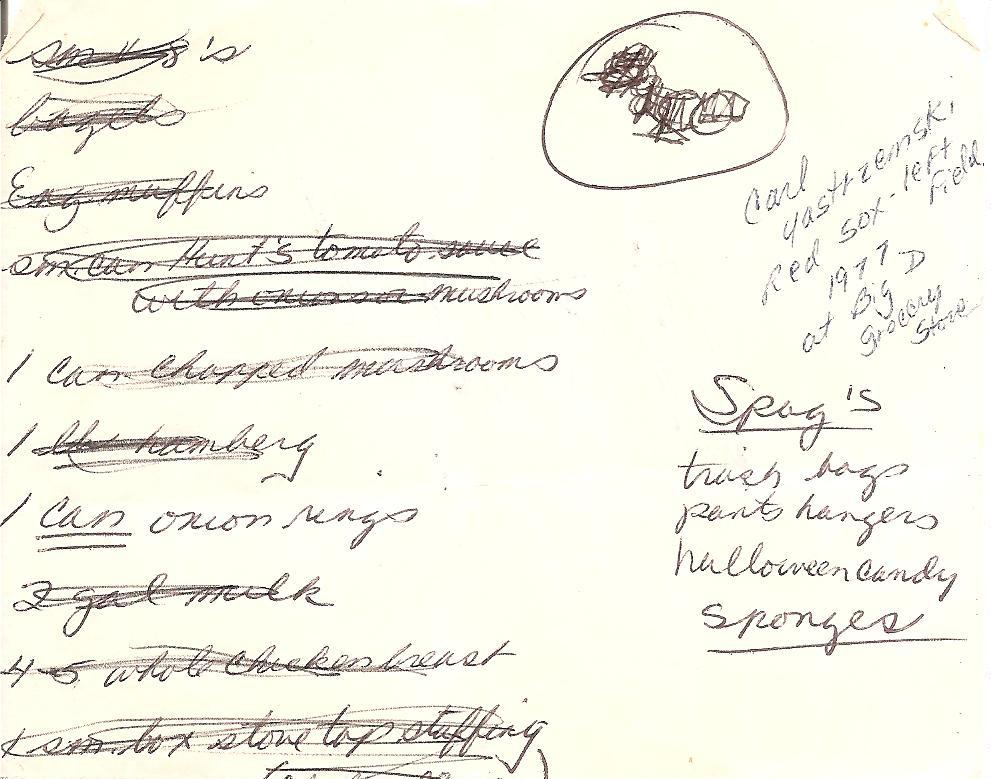 's
bagels
Eng muffins
sm. can Hunt's tomato sauce
with onions or mushrooms
1 can chopped mushrooms
1 lb hamberg
1 can onion rings
2 gal milk
4-5 whole chicken breast
sm. box stove top stuffing
Carl
Yastrzemski
Red Sox - left
Field
1977
at Big D
grocery
store
Spag's
trash bags
pants hangers
halloween candy
sponges